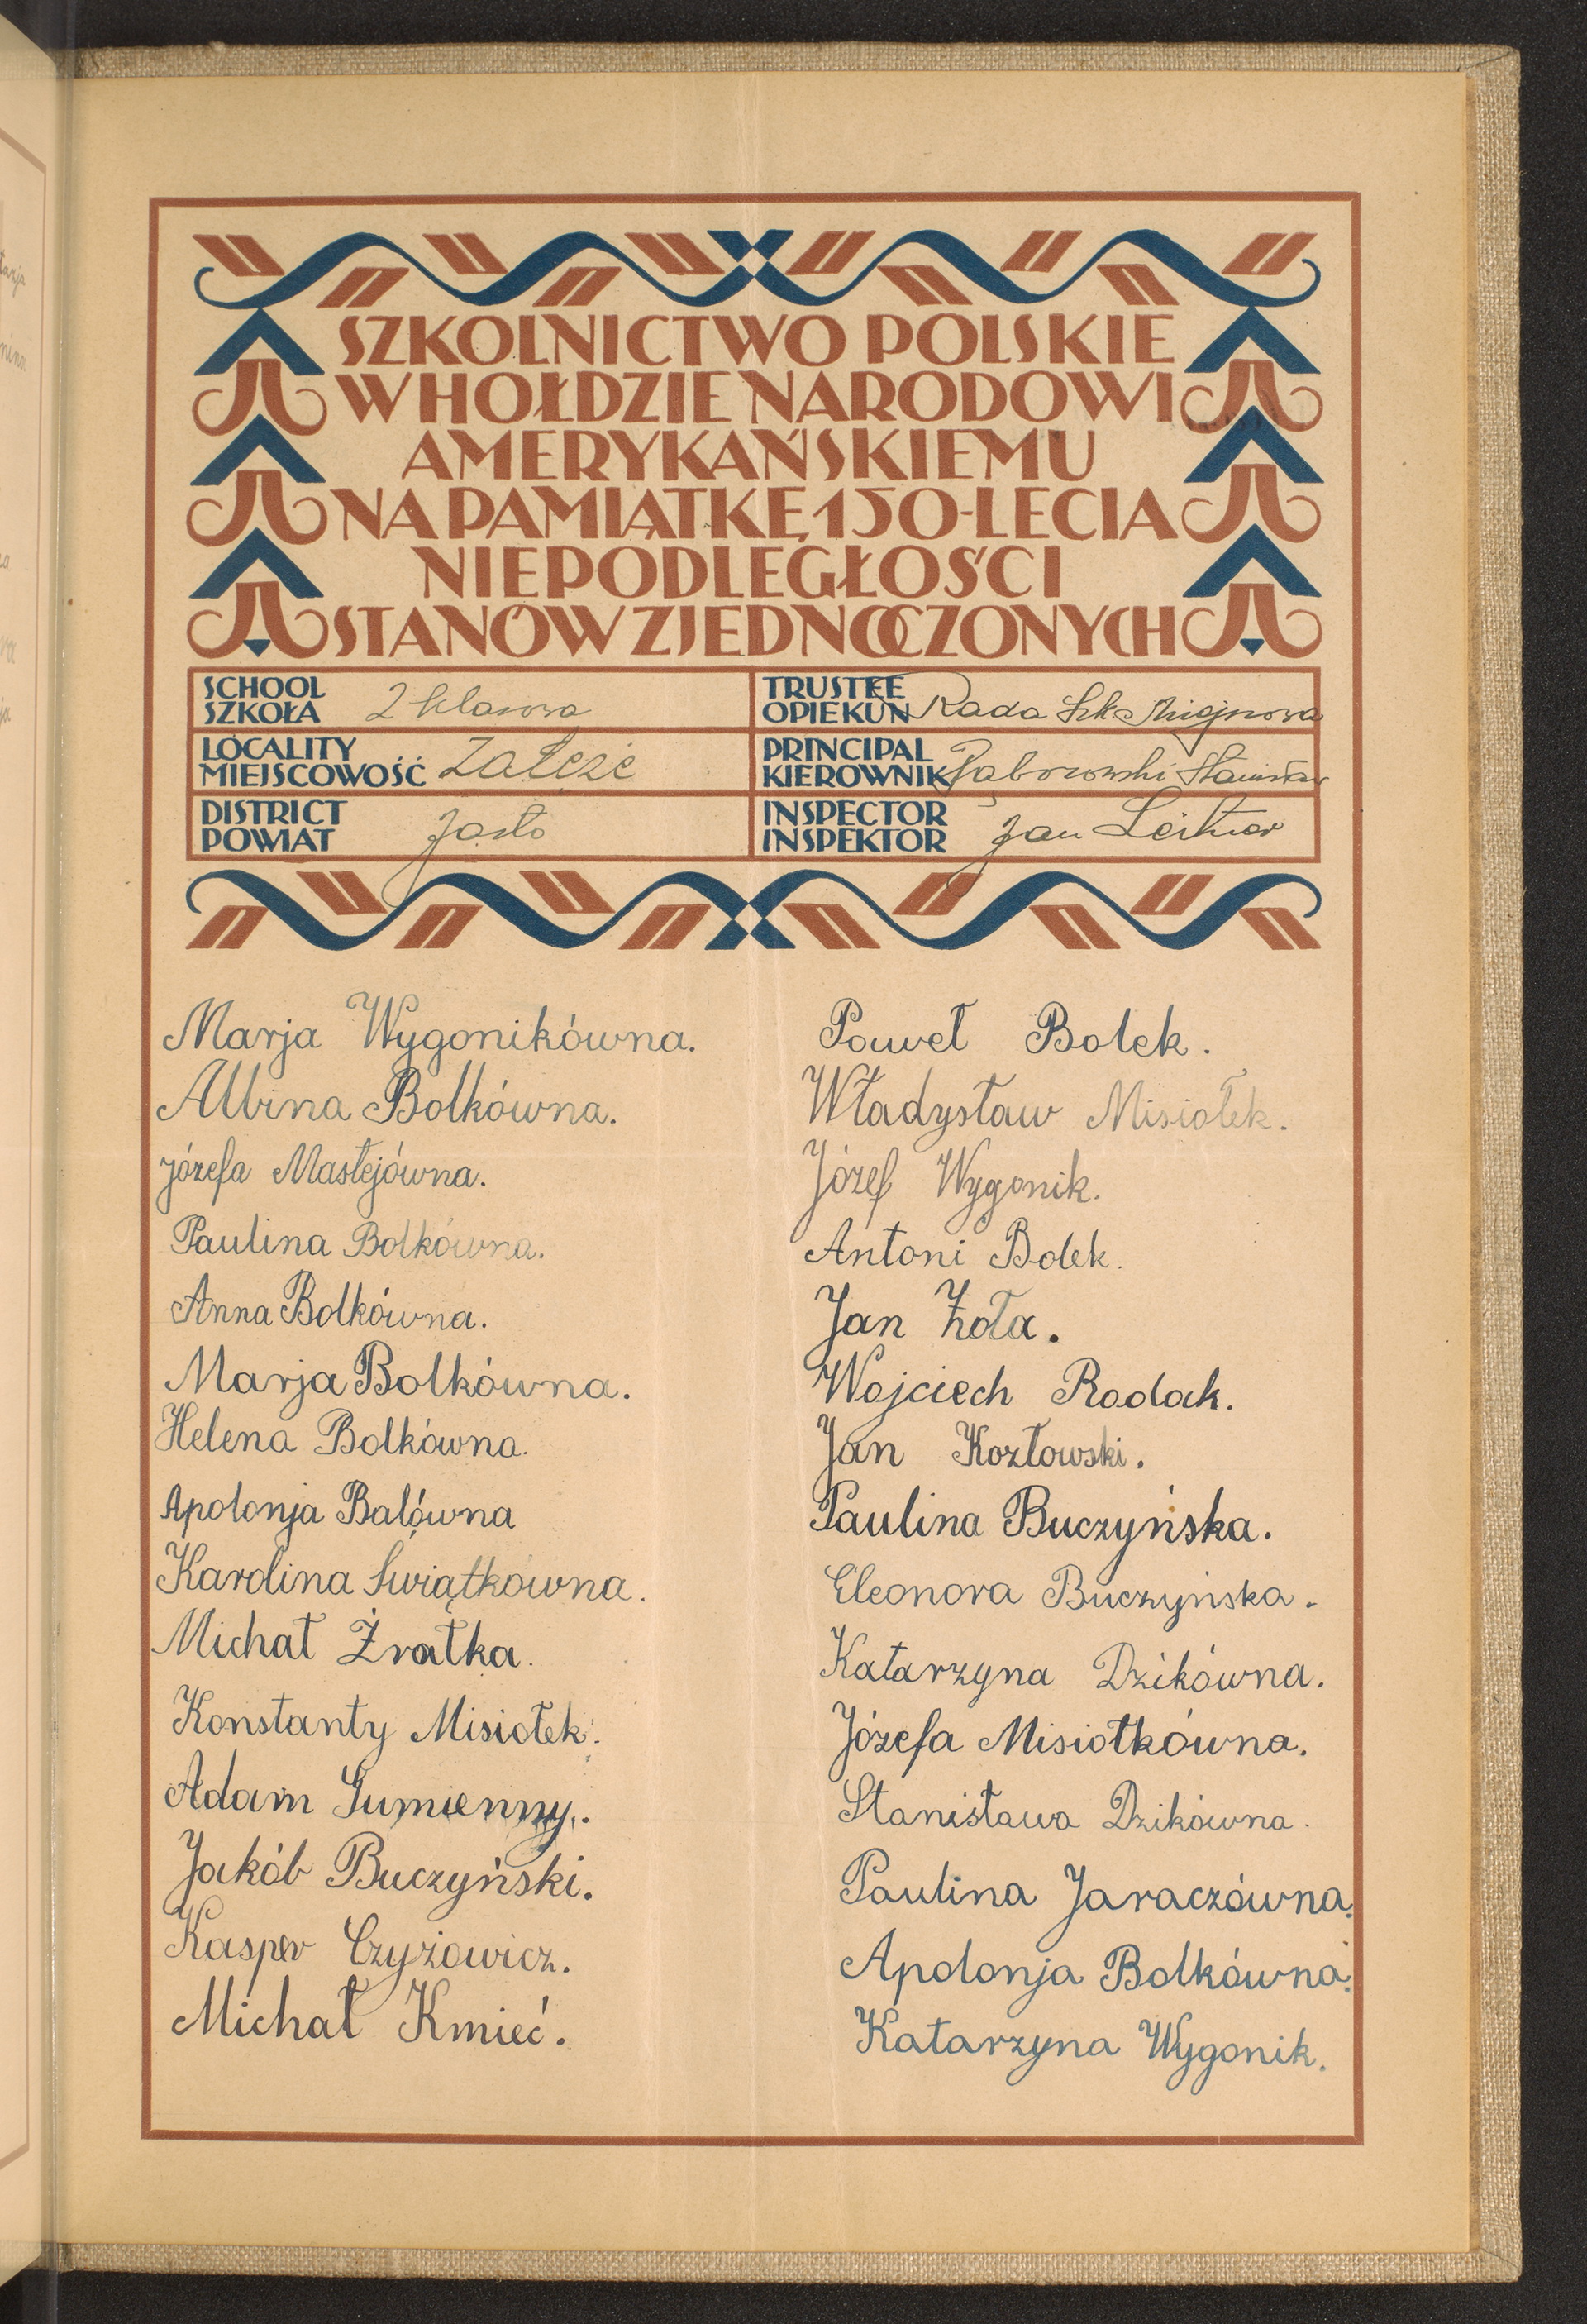 SZKOLNICTWO POLSKIE
W HOŁDZIE NARODOWI
AMERYKAŃSKIEMU
NA PAMIĄTKĘ 150-LECIA
NIEPODLEGŁOŚCI
STANÓW ZJEDNOCZONYCH
SCHOOL
SZKOŁA 2 klasowa
LOCALITY
MIEJSCOWOŚĆ Załęże
DISTRICT
POWIAT Jasło
TRUSTEE
OPIEKUN Rada Szk. Miejscowa
PRINCIPAL
KIEROWNIK Stanisław
INSPECTOR
INSPEKTOR Jan Leitner
Marja Wygonikówna.
Albina Bolkówna.
Józefa Mastejówna.
Paulina Bolkówna.
Anna Bolkówna.
Marja Bolkówna.
Helena Bolkówna.
Apolonja Balówna
Karolina Świątkówna.
Michał Żrałka.
Konstanty Misiołek.
Adam Sumienny.
Jakób Buczyński.
Kasper Czyżowicz.
Michał Kmieć.
Paweł Bolek.
Władysław Misiołek.
Józef Wygonik.
Antoni Bolek.
Jan Zoła.
Wojciech Rodak.
Jan Kozłowski.
Paulina Buczyńska.
Eleonora Buczyńska.
Katarzyna Dzikówna.
Józefa Misiołkówna.
Stanisława Dzikówna.
Paulina Jaraczówna.
Apolonja Bolkówna.
Katarzyna Wygonik.